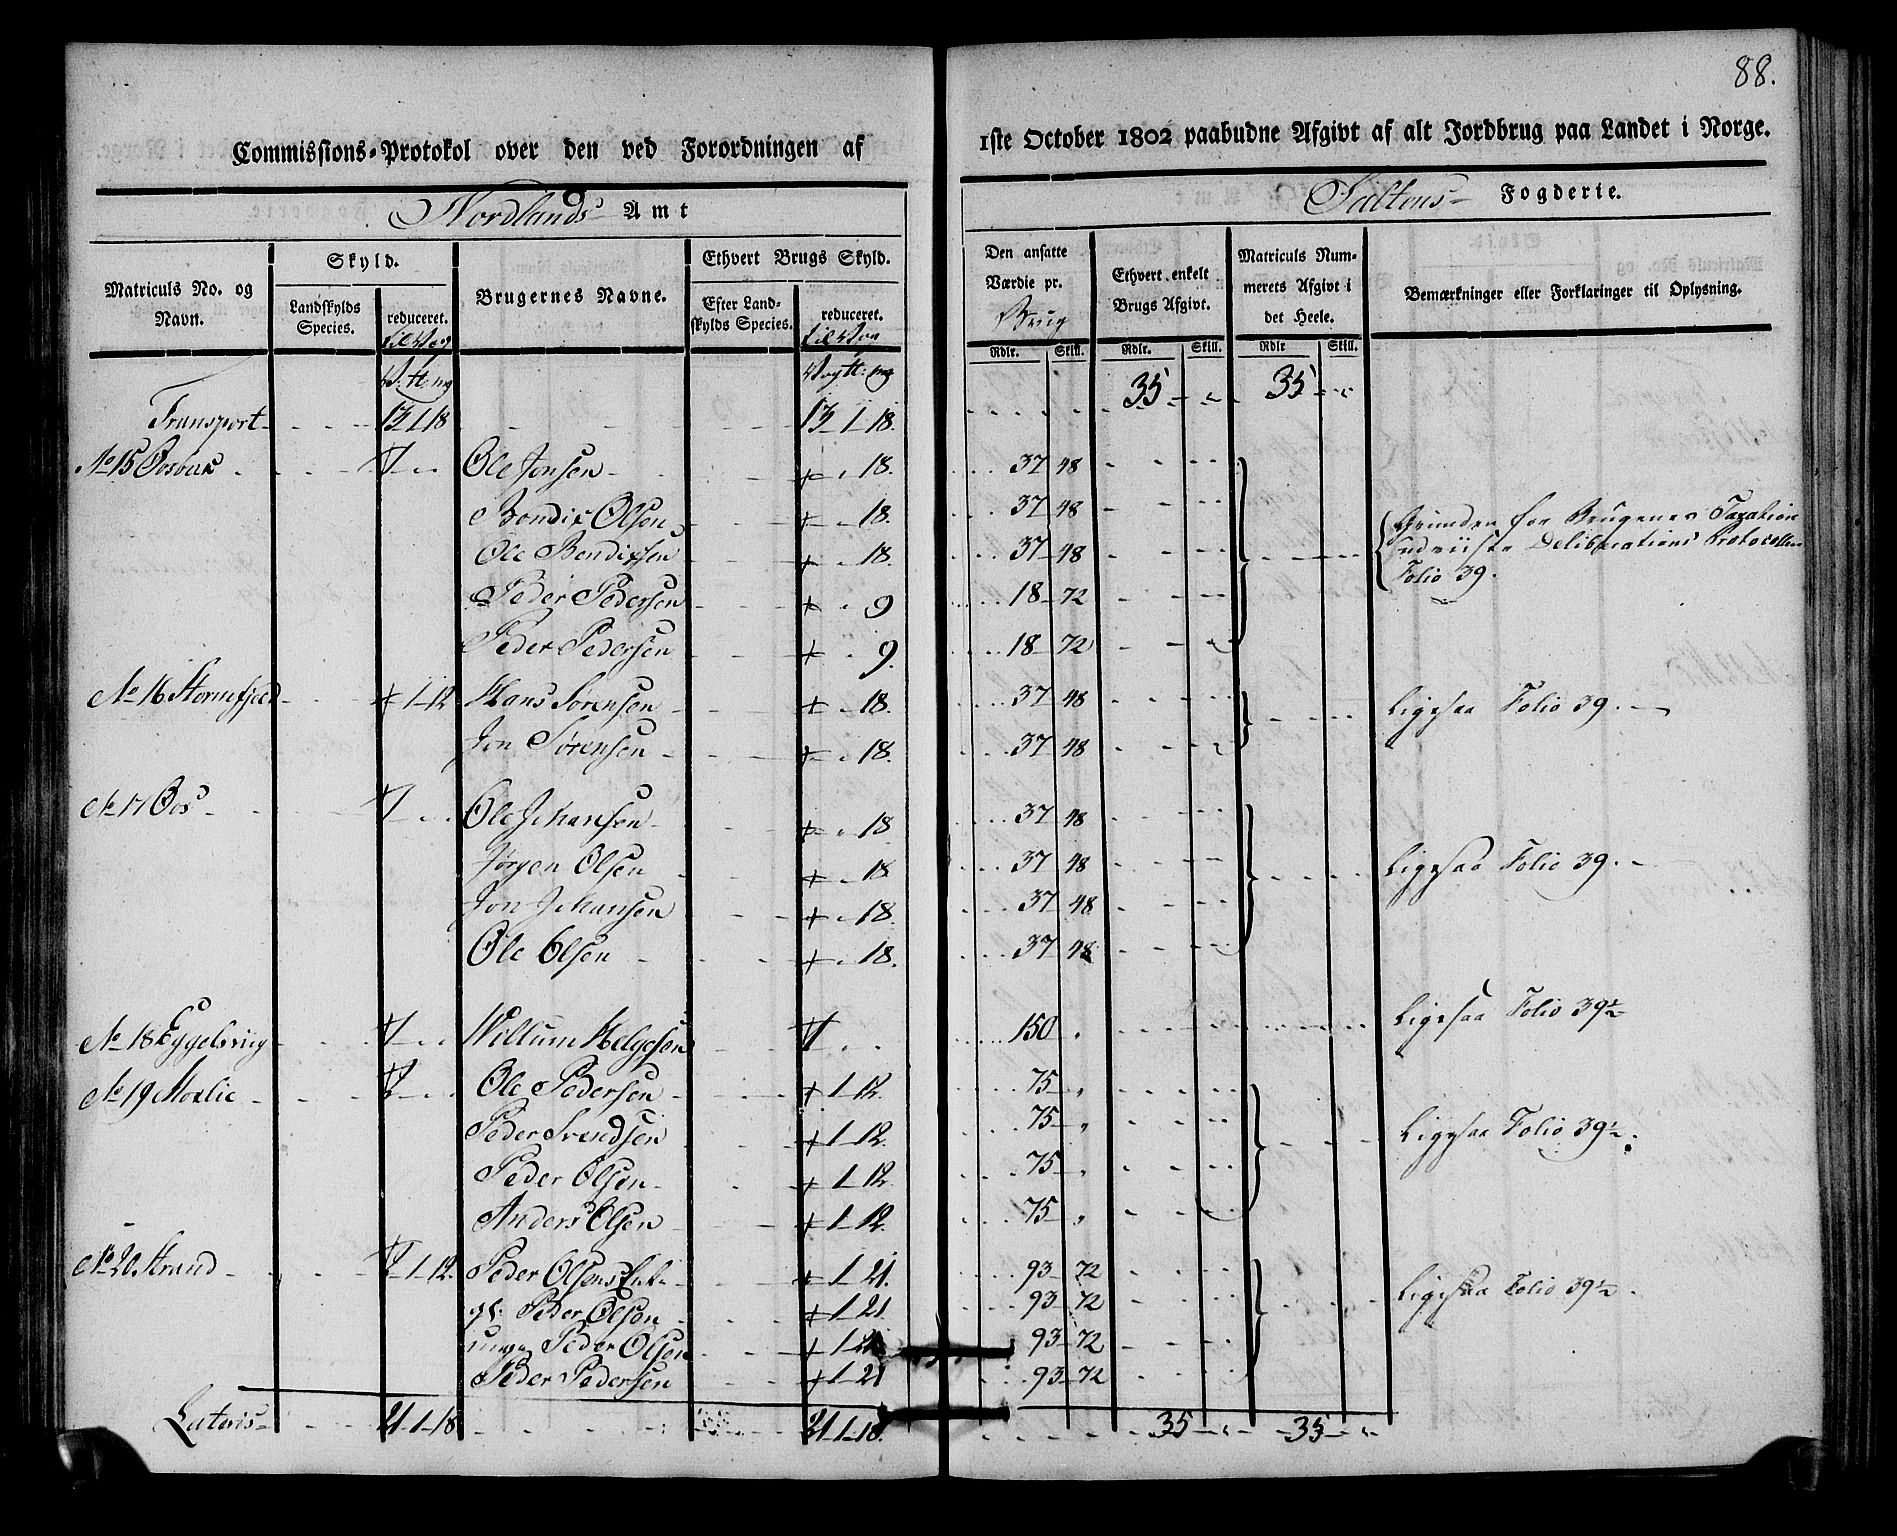 88.
Commissions-Protokol over den ved Forordningen af
1ste October 1802 paabudne Afgivt af alt Jordbrug paa Landet i Norge.
Nordlands Amt
Saltens Fogderie.
Matriculs No. og Navn.
Skyld.
Landskylds Species.
reduceret.
Brugernes Navne.
Ethvert Brugs Skyld.
Efter Landskylds Species.
reduceret.
Den ansatte Værdie pr. Brug
Ethvert enkelt Brugs Afgivt.
Matriculs Nummerets Afgivt i det Heele.
Bemærkninger eller Forklaringer til Oplysning.
Rdlr. Skill. Rdlr. Skill. Rdlr Skill.
Transport 13 1 18 13 1 18. 35 " 35 "
No 15 Ole Jonsen 18. 37 48
Bendix Olsen 18. 37 48 Grunden for Brugenes Taxation
Ole Bendixsen 18. 37 48 udviiste Deliberations Protocollen
Peder Pedersen 9 18 72 Folio 39.
Peder Pedersen 9. 18 72
No 16 Stormfjeld 1 12 Hans Sørensen 18. 37 48 Ligesaa Folio 39.
Jon Sørensen 18. 37 48
No 17 Oos Ole Johansen 18 37 48
Jørgen Olsen 18 37 48 Ligesaa Folio 39.
Jon Johansen 18. 37 48
Ole Olsen 18. 37 48
No 18 Willum Helgesen 150 " Ligesaa Folio 39½
No 19 Morlie Ole Pedersen 1 12. 75 "
Peder Svendsen 1 12. 75 " Ligesaa Folio 39½.
Peder Olsen 1 12 75 "
Anders Olsen 1 12. 75 "
No 20 Strand 1 12. Peder Olsens Enke 1 21. 93 72 Ligesaa Folio 39½.
gl. Peder Olsen 1 21 93 72
unge Peder Olsen 1 21 93 72
Peder Pedersen 1 21 93 72
Lateris 21 1 18 21 1 18. 35 " 35 "